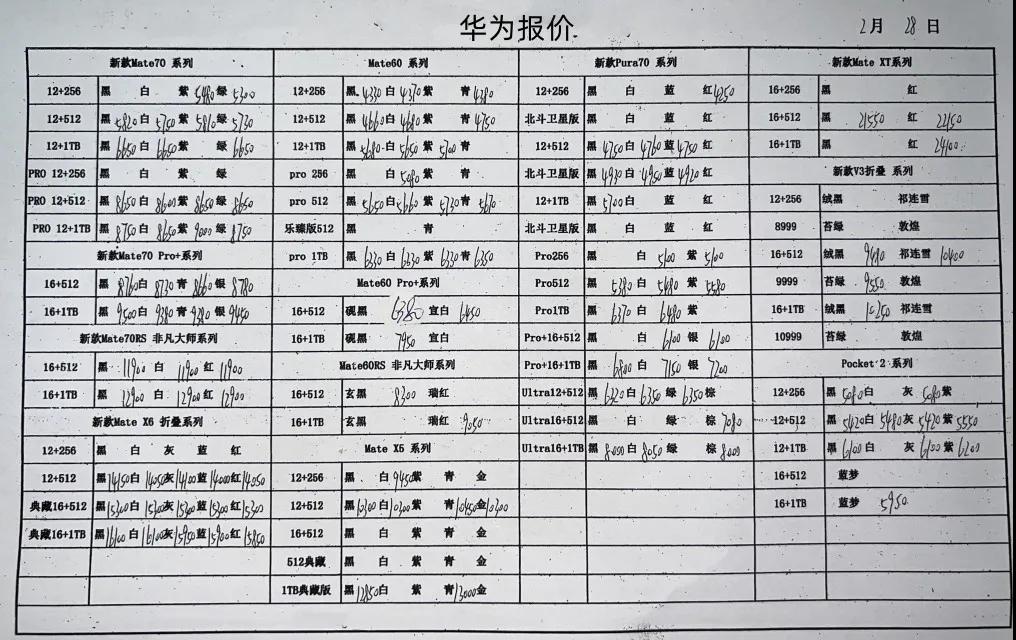 华为报价
2月 28日
新款Mate70 系列 Mate60 系列 新款Pura70 系列 新款Mate XT系列
12+256 黑 白 紫5480绿5300 12+256 黑4330白4370紫 青4380 12+256 黑 白 蓝 红4250 16+256 黑 红
12+512 黑5820白5750紫5810绿5730 12+512 黑4660白4680紫 青4750 北斗卫星版 黑 白 蓝 红 16+512 黑 21550 红 22150
12+1TB 黑6650白6650紫 绿6650 12+1TB 黑5680白5650紫5700青 12+512 黑4750白4760蓝4750红 16+1TB 黑 红 24100
PRO 12+256 黑 白 紫 绿 pro 256 黑 白5080紫 青 北斗卫星版 黑4930白4950蓝4920红 新款V3折叠 系列
PRO 12+512 黑8650白8600紫8650绿8650 pro 512 黑5650白5660紫5730青5670 12+1TB 黑5700白 蓝 红 12+256 绒黑 祁连雪
PRO 12+1TB 黑8750白8650紫9000绿8750 乐臻版512 黑 青 北斗卫星版 黑 白 蓝 红 8999 苔绿 敦煌
新款Mate70 Pro+系列 pro 1TB 黑6330白6330紫6330青6350 Pro256 黑 白5100紫5100 16+512 绒黑 9480 祁连雪10400
16+512 黑8760白8730青8660银8780 Mate60 Pro+系列 Pro512 黑5380白5480紫5580 9999 苔绿 9550 敦煌
16+1TB 黑9500白9380青9380银9450 16+512 砚黑 6380 宣白 6450 Pro1TB 黑6370白6480紫 16+1TB 绒黑 10250 祁连雪
新款Mate70RS 非凡大师系列 16+1TB 砚黑 7950 宣白 Pro+16+512 黑 白6100银6100 10999 苔绿 敦煌
16+512 黑11900白11900红11900 Mate60RS 非凡大师系列 Pro+16+1TB 黑6800白7150银7200 Pocket 2 系列
16+1TB 黑12900白12900红12900 16+512 玄黑 8300 瑞红 Ultra12+512 黑6320白6350绿6350棕 12+256 黑5080白 灰5080紫
新款Mate X6 折叠系列 16+1TB 玄黑 瑞红 9050 Ultra16+512 黑 白 绿 棕7080 12+512 黑5420白5480灰5420紫5550
12+256 黑 白 灰 蓝 红 Mate X5 系列 Ultra16+1TB 黑8000白8050绿 棕8000 12+1TB 黑6100白 灰6100紫6200
12+512 黑14150白14050灰14100蓝14000红14050 12+256 黑 白9450紫 青 金 16+512 蓝梦
典藏16+512 黑15300白15300灰15300蓝15300红15300 12+512 黑10300白10300紫 青10450金10300 16+1TB 蓝梦 5950
典藏16+1TB 黑16100白16100灰15950蓝15900红15850 16+512 黑 白 紫 青 金
512典藏 黑 白 紫 青 金
1TB典藏版 黑12850白 紫 青13000金